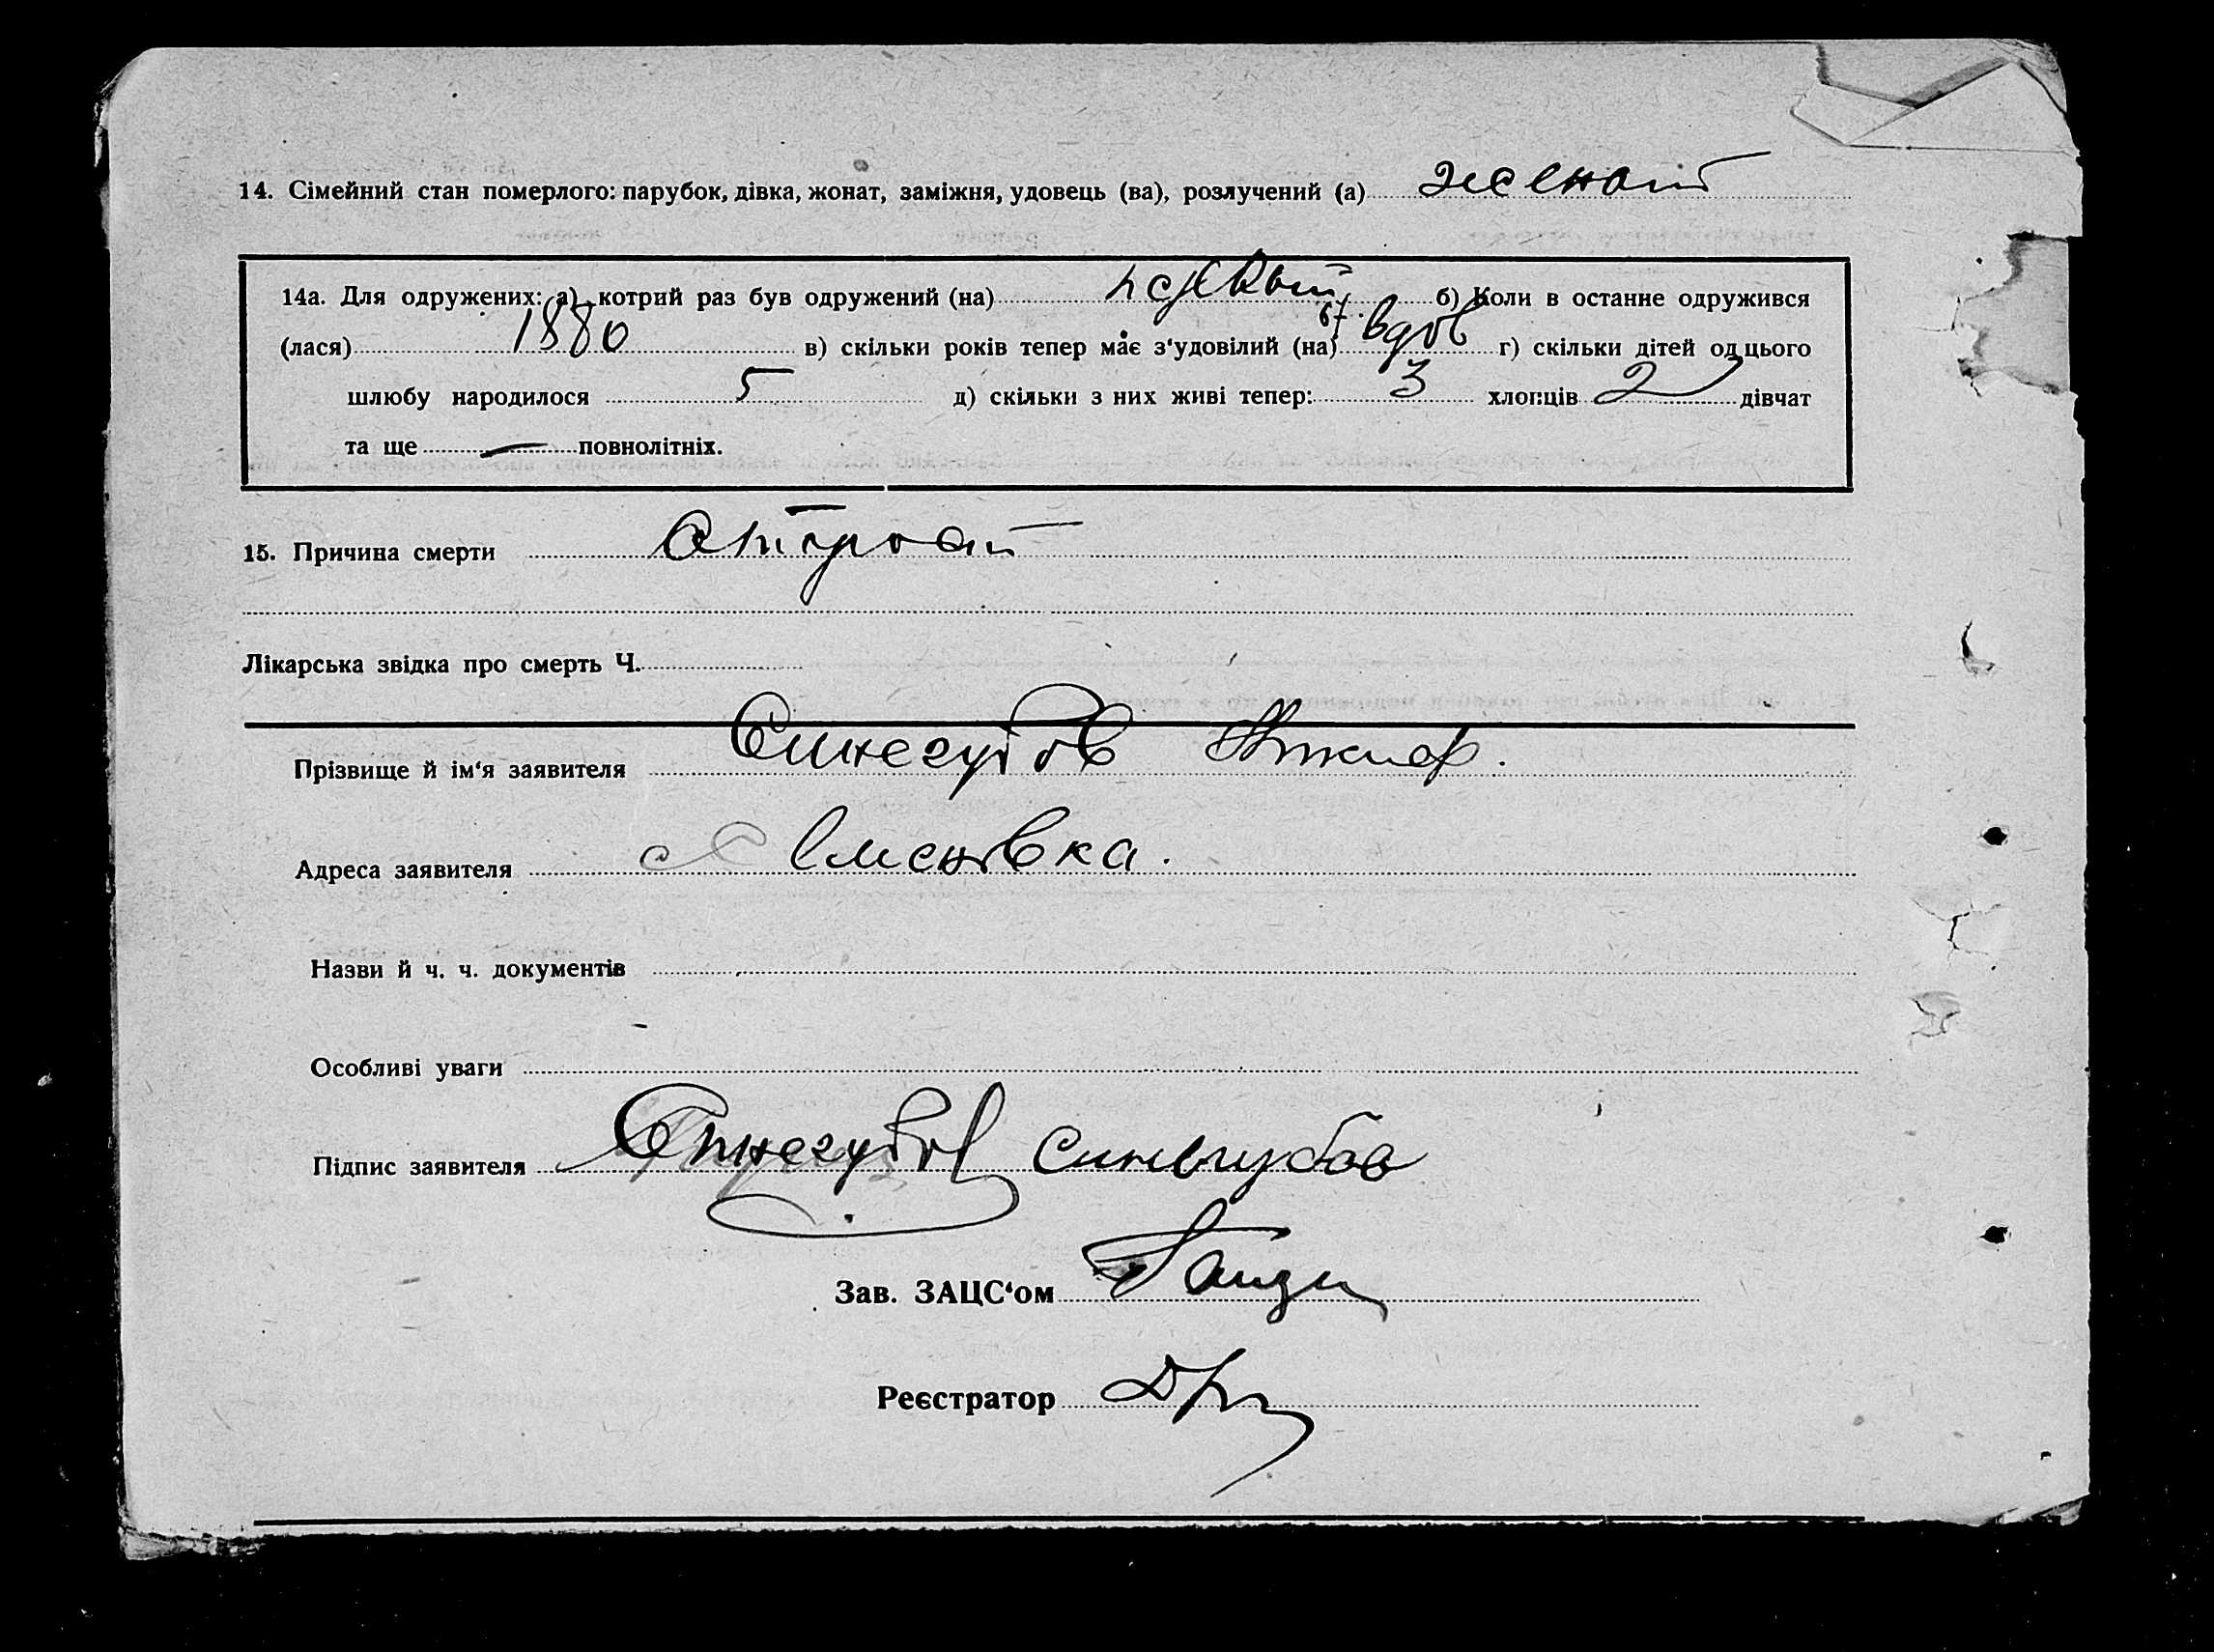 14. Сімейний стан померлого: парубок, дівка, жонат, заміжня, удовець (ва), розлучений (а) женат
14а. Для одружених: а) котрий раз був одружений (на) первый б) Коли в останнє одружився
(лася) 1880 в) скільки років тепер має з'удовілий (на) 67 вдов г) скільки дітей од цього
шлюбу народилося 5 д) скільки з них живі тепер: 3 хлопців 2 дівчат
та ще — повнолітніх.
15. Причина смерти
Лікарська звідка про смерть Ч.
Прізвище й ім'я заявителя Синегубов
Адреса заявителя с
Назви й ч. ч. документів
Особливі уваги
Підпис заявителя Синегубов Синьгубов
Зав. ЗАЦС'ом
Реєстратор